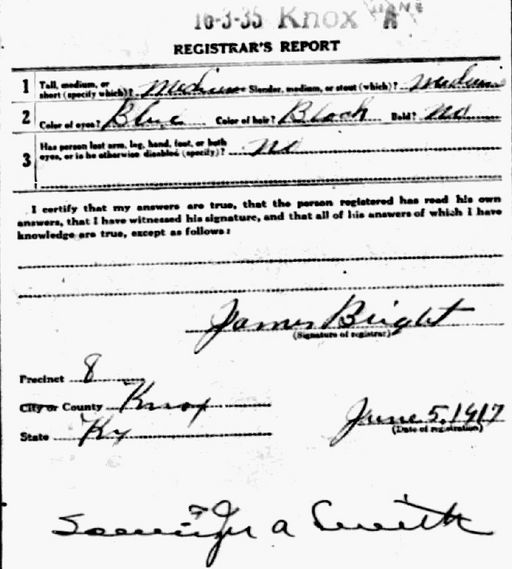 16-3-35 Knox A
REGISTRAR'S REPORT
1 Tall, medium, or short (specify which)? Medium Slender, medium, or stout (which)? medium
2 Color of eyes? Blue Color of hair? Black Bald? No
3 Has person lost arm, leg, hand, foot, or both eyes, or is he otherwise disabled (specify)? no
I certify that my answers are true, that the person registered has read his own
answers, that I have witnessed his signature, and that all of his answers of which I have
knowledge are true, except as follows:
James Bright
(Signature of registrar)
Precinct 8
City or County Knox
State Ky
June 5, 1917
(Date of registration)
a Smith